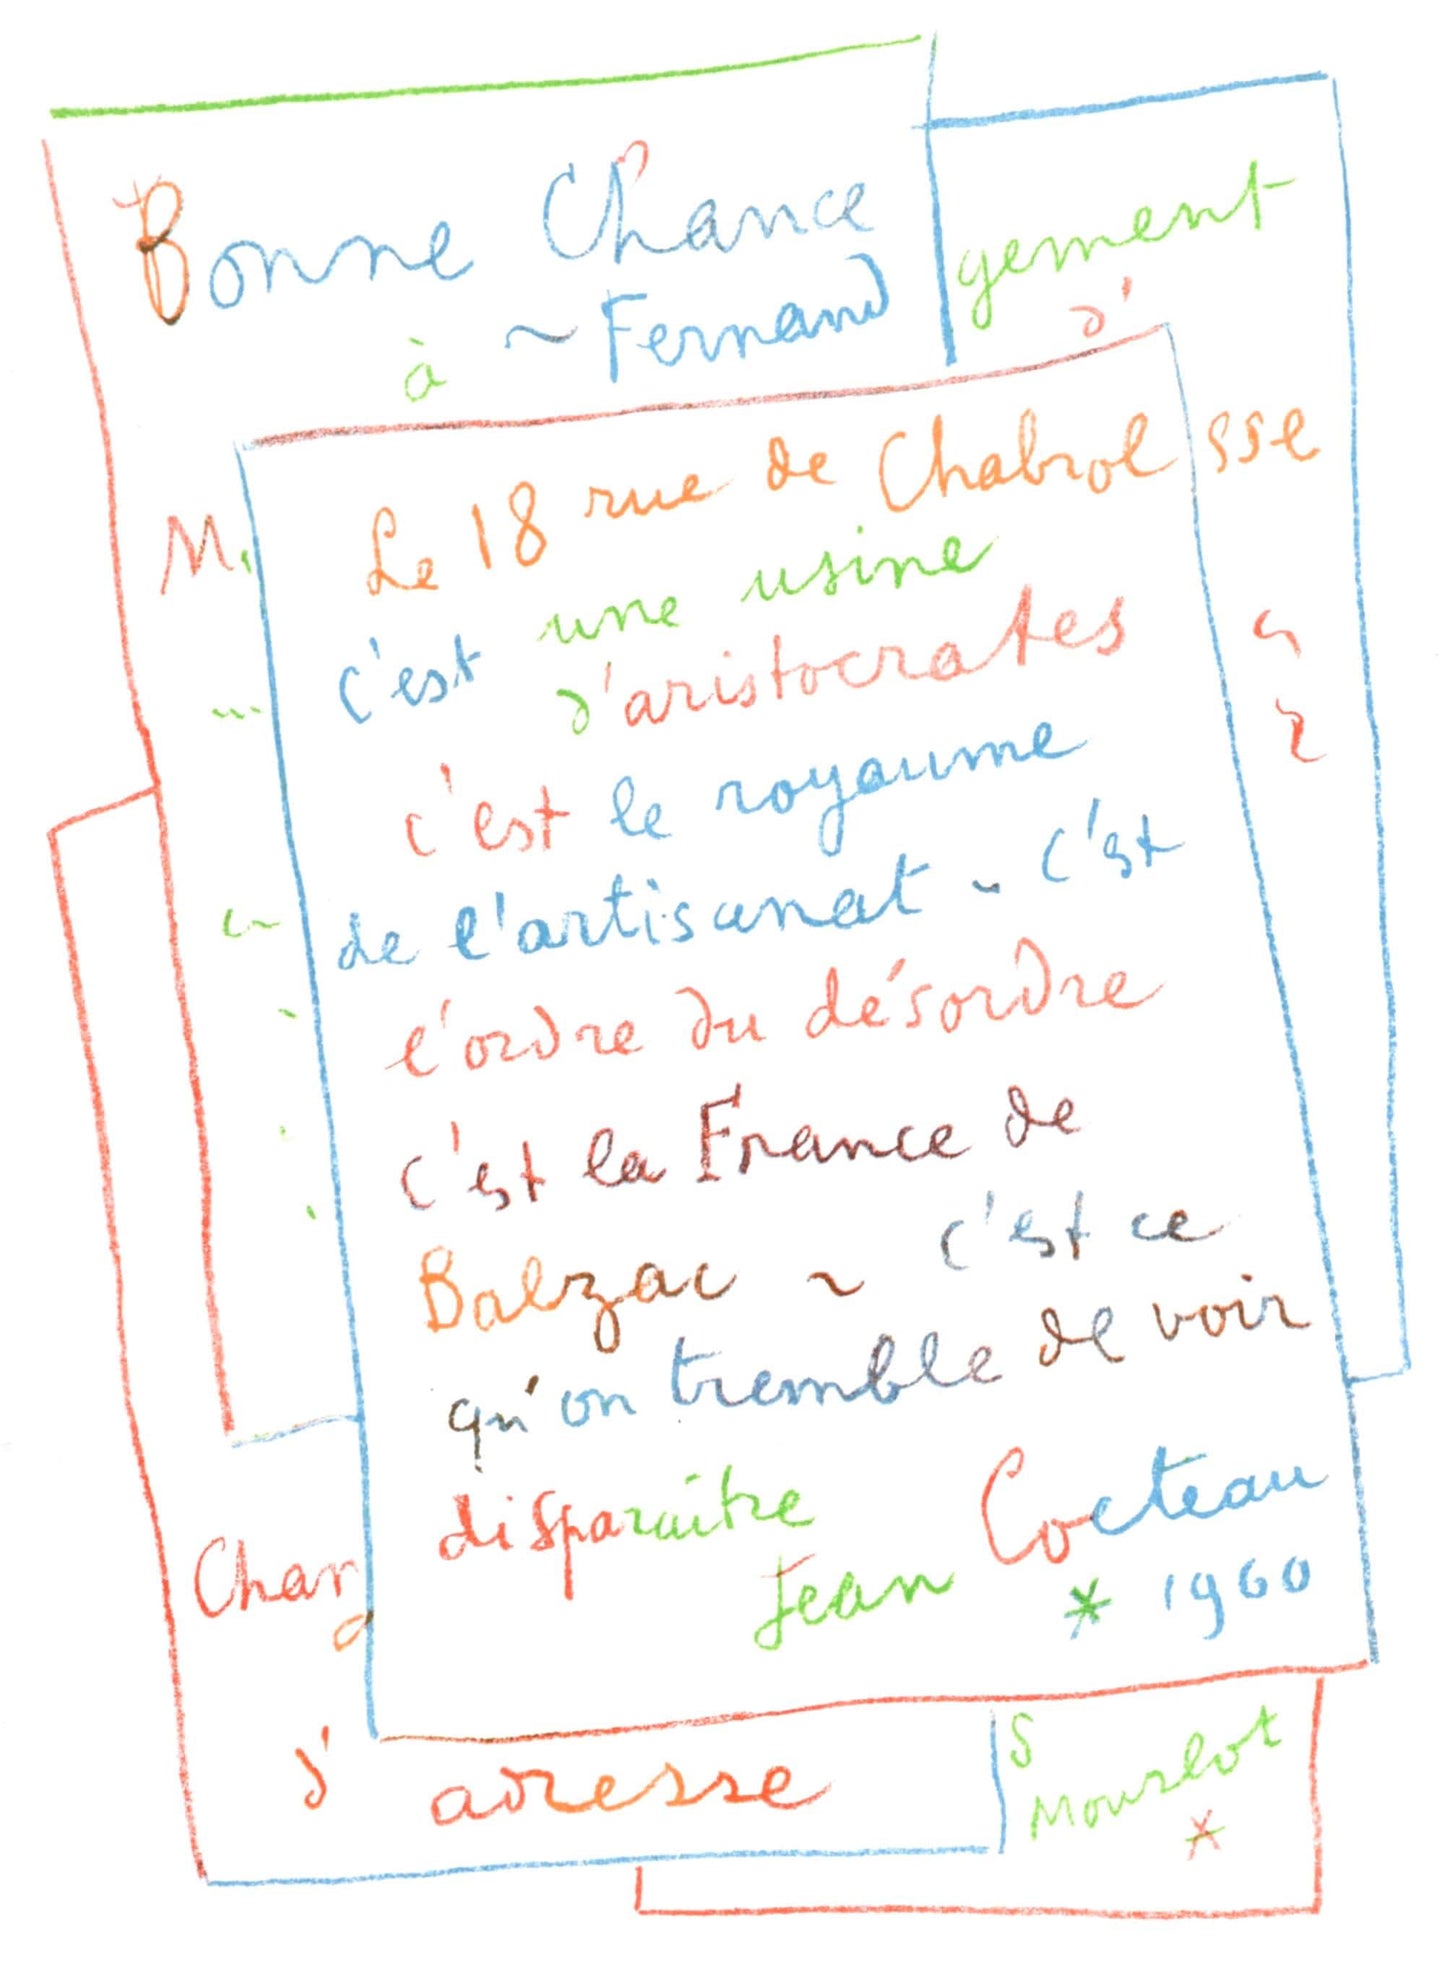 Bonne Chance
à ~ Fernand
gement
d'
sse
M.
Le 18 rue de Chabrol
c'est une usine
d'aristocrates
c'est le royaume
de l'artisanat ~ c'est
l'ordre du désordre
c'est la France de
Balzac ~ c'est ce
qu'on tremble de voir
disparaître
Jean Cocteau
* 1960
Chan
d' adresse
s
Mourlot
*